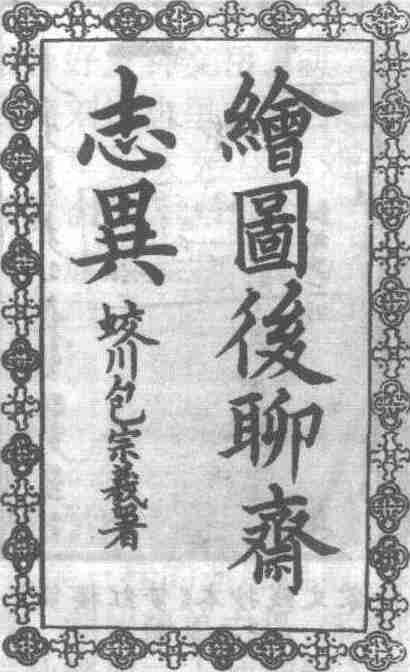 繪圖後聊齋
志異
蛟川包宗義署